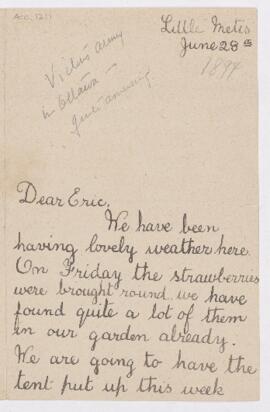 Acc. 1211
Little Metis
June 28th
1894
in Ottawa —
quite amusing
Dear Eric,
We have been
having lovely weather here
On Friday the strawberries
were brought round we have
found quite a lot of them
in our garden already.
We are going to have the
tent put up this week